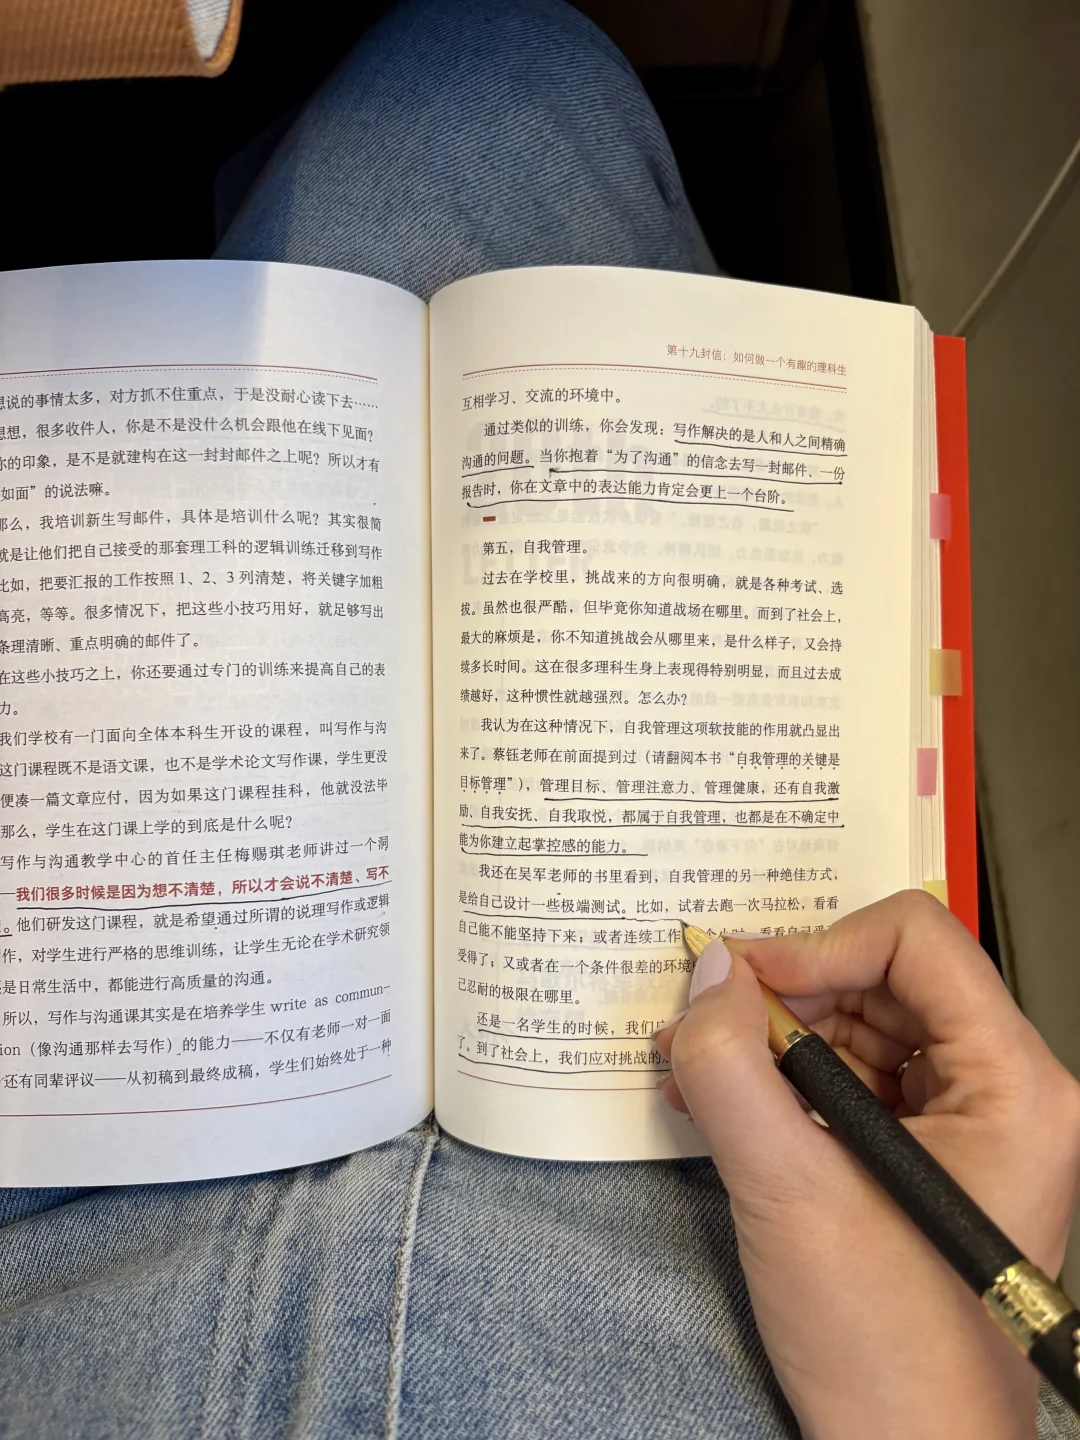 想说的事情太多，对方抓不住重点，于是没耐心读下去……
想想，很多收件人，你是不是没什么机会跟他在线下见面？
你的印象，是不是就建构在这一封封邮件之上呢？所以才有
如面”的说法嘛。
那么，我培训新生写邮件，具体是培训什么呢？其实很简
就是让他们把自己接受的那套理工科的逻辑训练迁移到写作
比如，把要汇报的工作按照 1、2、3 列清楚，将关键字加粗
高亮，等等。很多情况下，把这些小技巧用好，就足够写出
条理清晰、重点明确的邮件了。
在这些小技巧之上，你还要通过专门的训练来提高自己的表
力。
我们学校有一门面向全体本科生开设的课程，叫写作与沟
这门课程既不是语文课，也不是学术论文写作课，学生更没
便凑一篇文章应付，因为如果这门课程挂科，他就没法毕
那么，学生在这门课上学的到底是什么呢？
写作与沟通教学中心的首任主任梅赐琪老师讲过一个洞
——我们很多时候是因为想不清楚，所以才会说不清楚、写不
。他们研发这门课程，就是希望通过所谓的说理写作或逻辑
作，对学生进行严格的思维训练，让学生无论在学术研究领
是日常生活中，都能进行高质量的沟通。
所以，写作与沟通课其实是在培养学生 write as commun-
ion（像沟通那样去写作）的能力——不仅有老师一对一面
还有同辈评议——从初稿到最终成稿，学生们始终处于一种
第十九封信：如何做一个有趣的理科生
互相学习、交流的环境中。
通过类似的训练，你会发现：写作解决的是人和人之间精确
沟通的问题。当你抱着“为了沟通”的信念去写一封邮件、一份
报告时，你在文章中的表达能力肯定会更上一个台阶。
第五，自我管理。
过去在学校里，挑战来的方向很明确，就是各种考试、选
拔。虽然也很严酷，但毕竟你知道战场在哪里。而到了社会上，
最大的麻烦是，你不知道挑战会从哪里来，是什么样子，又会持
续多长时间。这在很多理科生身上表现得特别明显，而且过去成
绩越好，这种惯性就越强烈。怎么办？
我认为在这种情况下，自我管理这项软技能的作用就凸显出
来了。蔡钰老师在前面提到过（请翻阅本书“自我管理的关键是
目标管理”），管理目标、管理注意力、管理健康，还有自我激
励、自我安抚、自我取悦，都属于自我管理，也都是在不确定中
能为你建立起掌控感的能力。
我还在吴军老师的书里看到，自我管理的另一种绝佳方式，
是给自己设计一些极端测试。比如，试着去跑一次马拉松，看看
自己能不能坚持下来；或者连续工作个小时，看看自己受
受得了；又或者在一个条件很差的环境
己忍耐的极限在哪里。
还是一名学生的时候，我们
了。到了社会上，我们应对挑战的